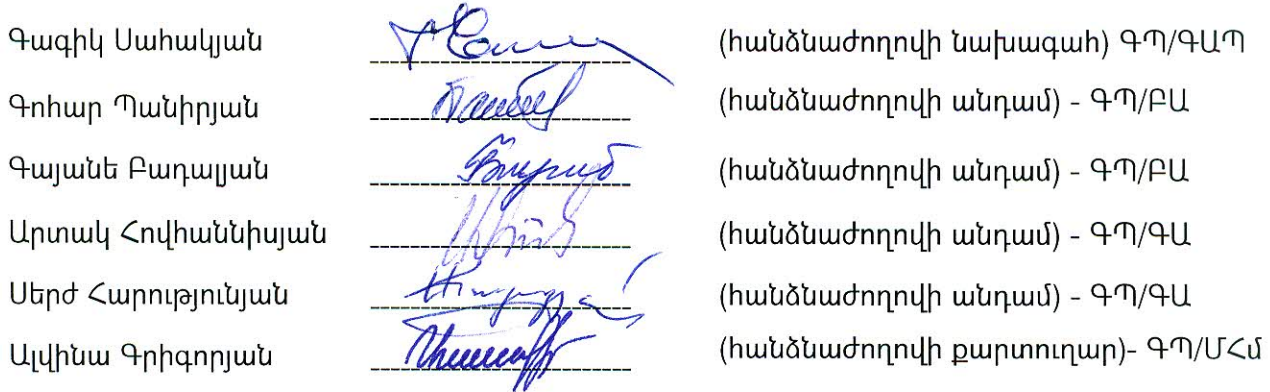 Գագիկ Սահակյան (հանձնաժողովի նախագահ) ԳՊ/ԳԱՊ
Գոհար Պանիրյան (հանձնաժողովի անդամ) - ԳՊ/ԲԱ
Գայանե Բադալյան (հանձնաժողովի անդամ) - ԳՊ/ԲԱ
Արտակ Հովհաննիսյան (հանձնաժողովի անդամ) - ԳՊ/ԳԱ
Սերժ Հարությունյան (հանձնաժողովի անդամ) - ԳՊ/ԳԱ
Ալվինա Գրիգորյան (հանձնաժողովի քարտուղար)- ԳՊ/ՄՀմ